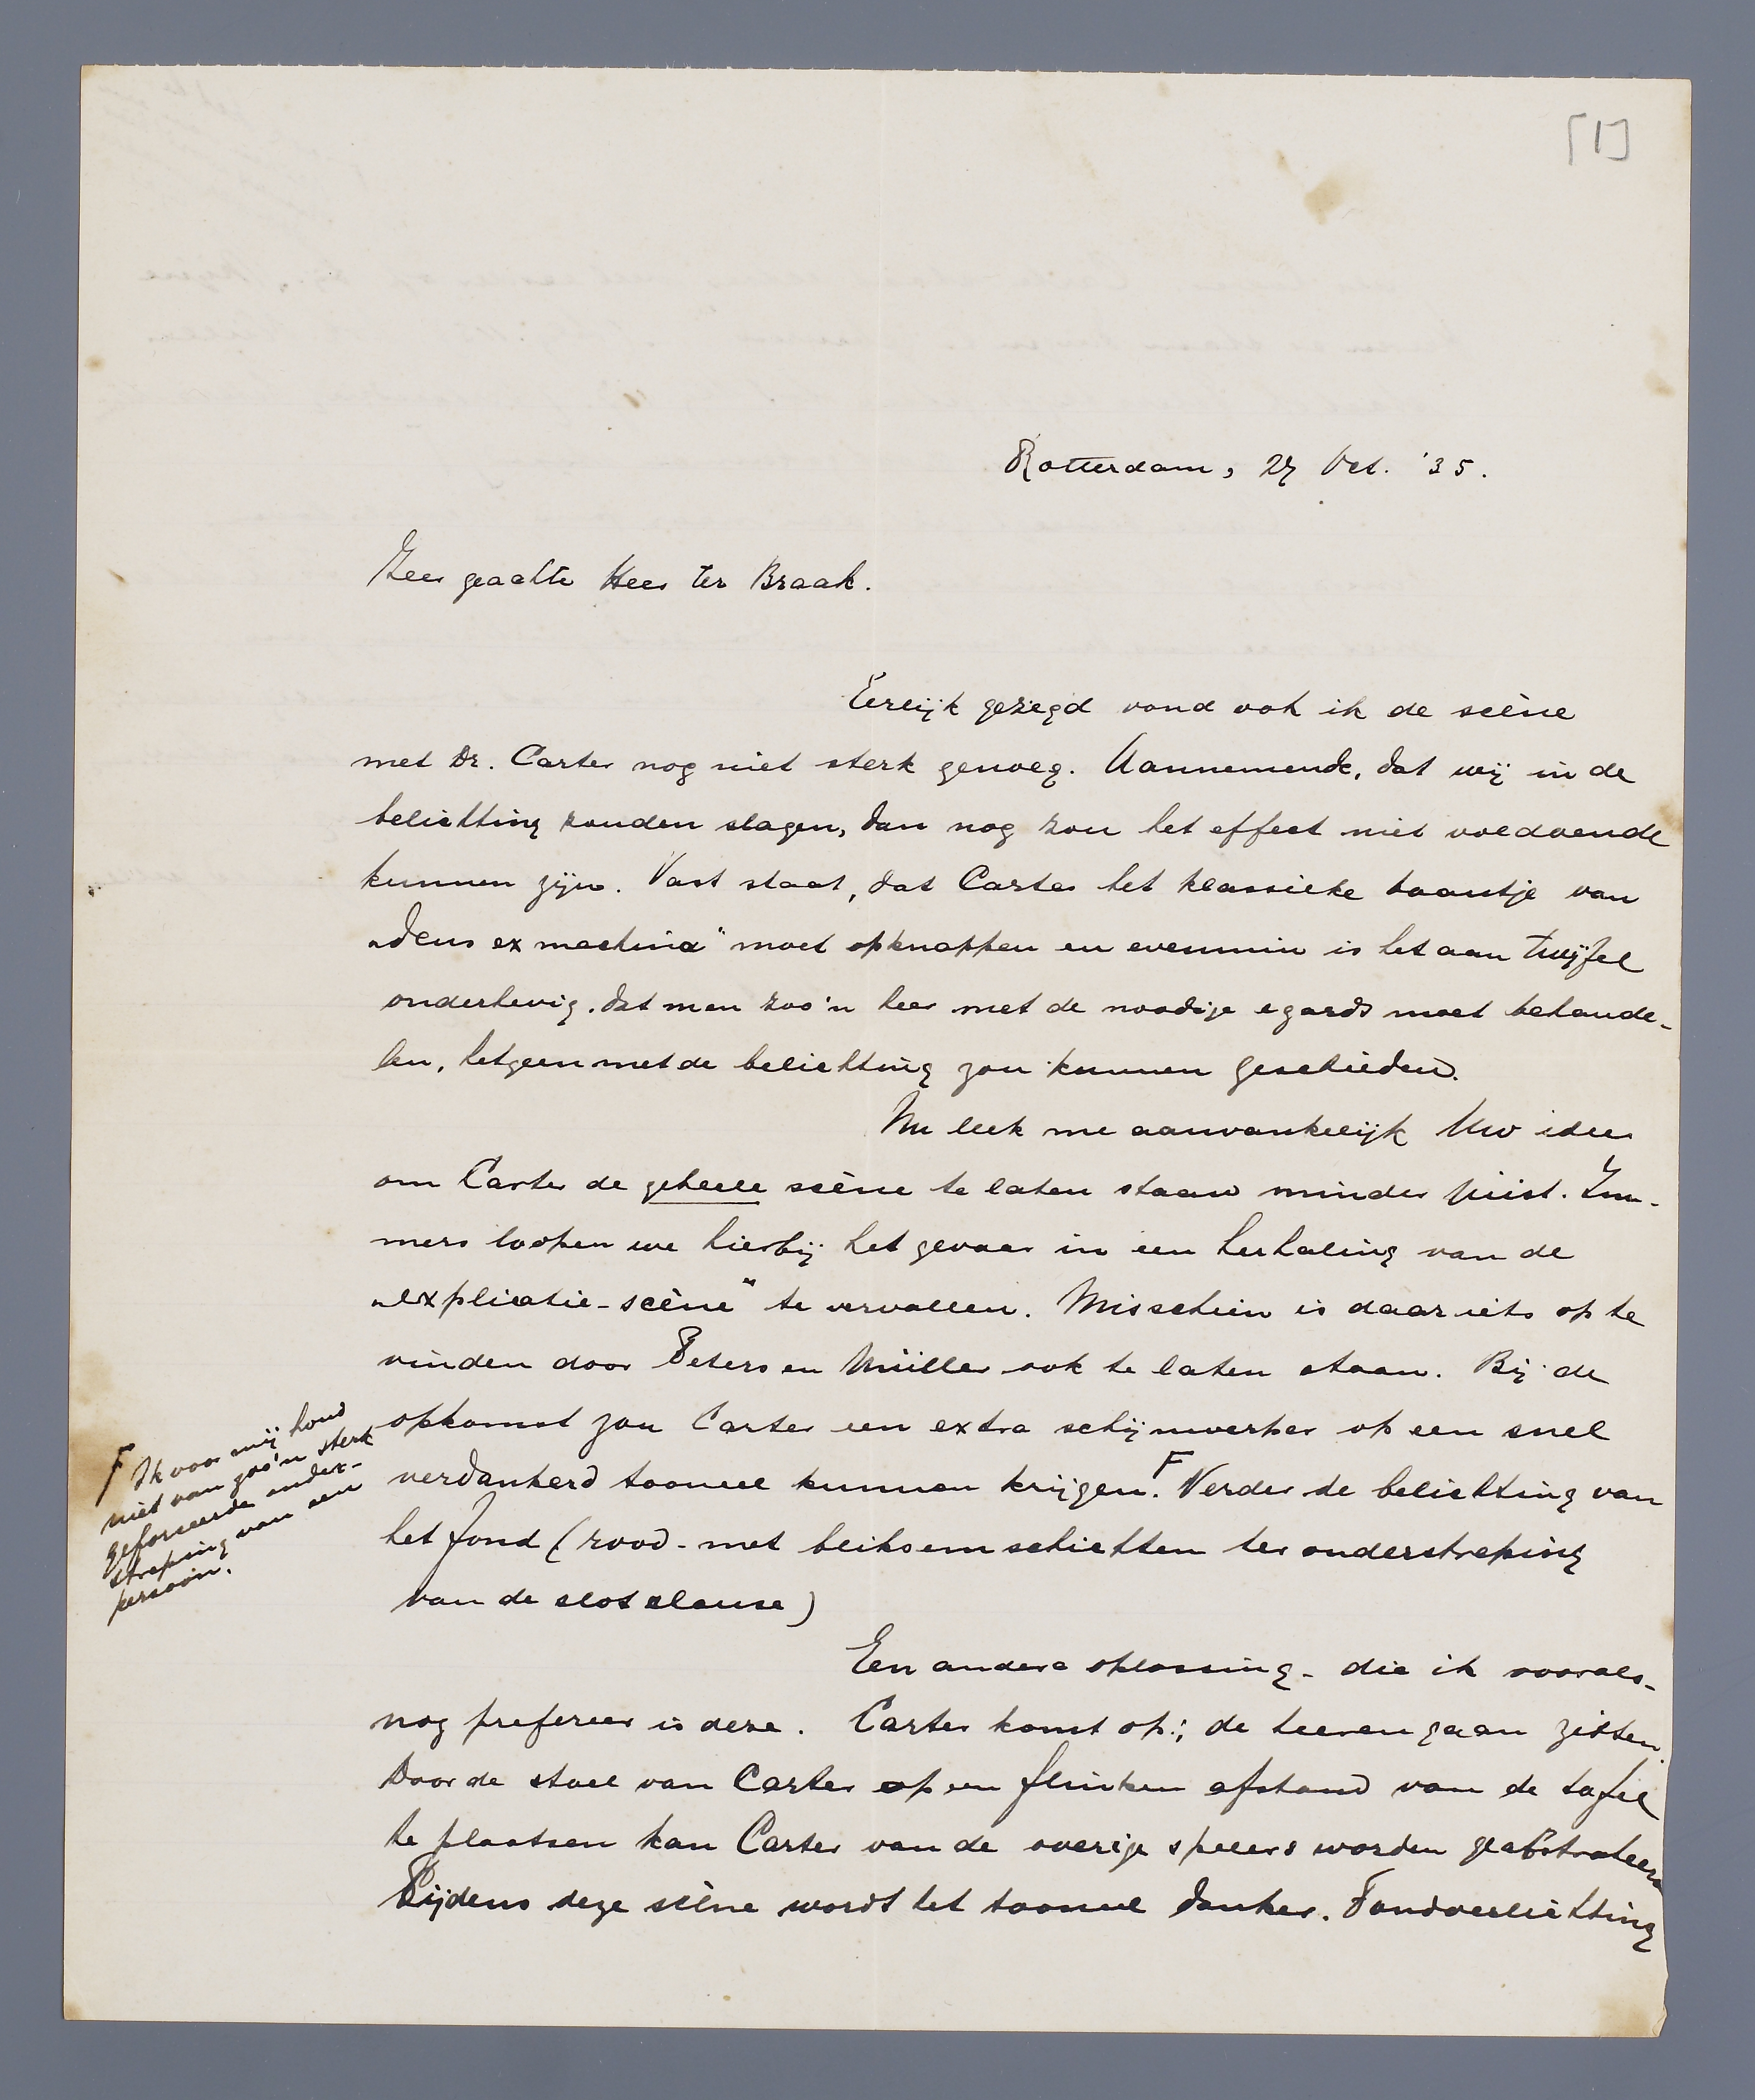 [1]
Rotterdam, 27 Oct. '35.
Zeer geachte Heer ter Braak.
Eerlijk gezegd vond ook ik de scène
met Dr. Carter nog niet sterk genoeg. Aannemende, dat wij in de
belichting zouden slagen, dan nog zou het effect niet voldoende
kunnen zijn. Vast staat, dat Carter het klassieke baantje van
„deus ex machina" moet opknappen en evenmin is het aan twijfel
onderhevig, dat men zoo'n heer met de noodige egards moet behande-
len, hetgeen met de belichting zou kunnen geschieden.
Nu leek me aanvankelijk Uw idee
om Carter de geheele scène te laten staan minder juist. Im-
mers loopen we hierbij het gevaar in een herhaling van de
„explicatie-scène" te vervallen. Misschien is daar iets op te
vinden door Peters en Müller ook te laten staan. Bij de
opkomst zou Carter een extra schijnwerper op een snel
verdonkerd tooneel kunnen krijgen. F Verder de belichting van
het fond (rood - met bliksemschichten ter onderstreping
van de slotclause)
F Ik voor mij houd
niet van zoo'n sterk
geforceerde onder-
streping van een
persoon.
Een andere oplossing - die ik voorals-
nog prefereer is deze. Carter komt op; de heeren gaan zitten.
Door de stoel van Carter op een flinken afstand van de tafel
te plaatsen kan Carter van de overige spelers worden geabstraheerd
Tijdens deze scène wordt het tooneel donker. Fondverlichting